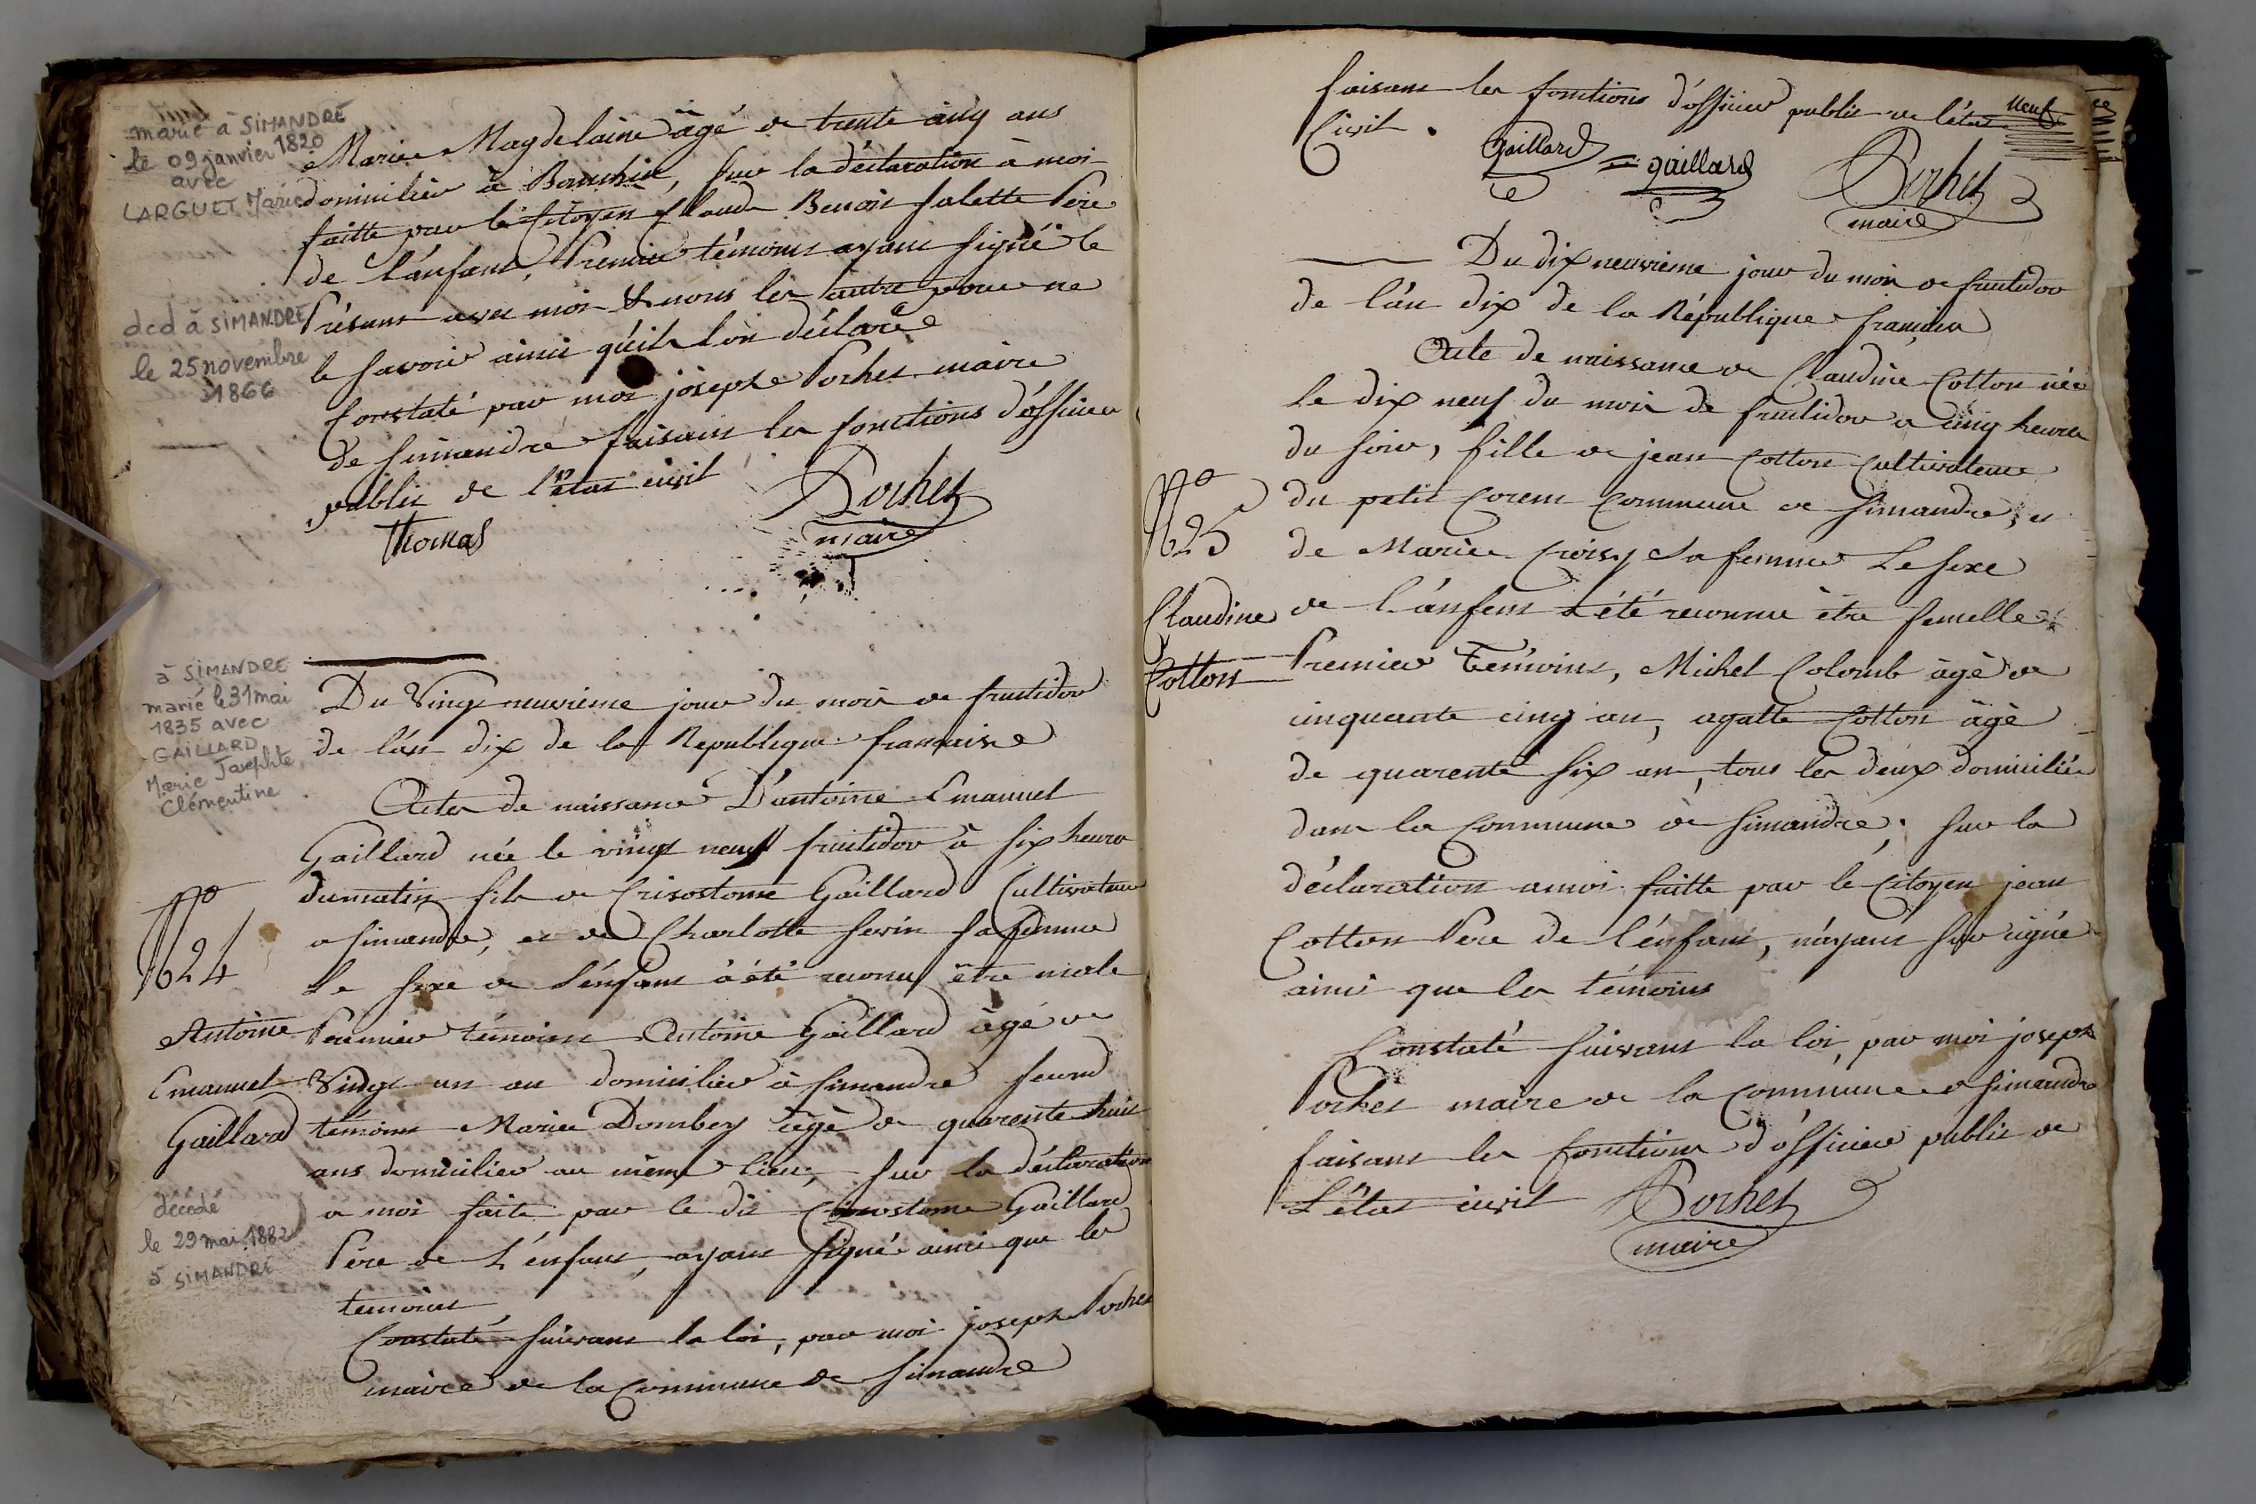 marié à SIMANDRE
le 09 janvier 1820
avec
LARGUET Marie
Marie Magdelaine âgé de trente cinq ans
domicilier à, sur la déclaration à moi
faitte par le Citoyen Claude Benois Jalette Pere
de l'ánfant, Premier témoins ayant signéé le
Présant avec moi & nous les autre pour ne
le savoir ainsi qu'ils l'on déclaré
Constaté par moi joseph Pochet maire
de simandre faisant les fonctions d'officier
public de l'état civil
Thomas
Pochet
maire
dcd à SIMANDRE
le 25 novembre
1866
à SIMANDRE
marié le 31 mai
1835 avec
GAILLARD
Marie Josephte
Clémentine
Du Vingt neuvieme jour du mois de fructidor
de l'án dix de la Republique francaise
Acte de naissance D'antoine Emanuel
Gaillard née le vingt neuf fructidor à six heure
du matin fils de Crisostome Gaillard Cultivateur
a simandre, et de Charlotte Serin sa femme
Le sexe de L'énfant à été reconu être male
Premier témoins Antoine Gaillard àgé de
Vingt un an domicilier à simandre second
témoins Marie Dombey àgé de quarente huit
ans domicilier au même lieu, sur la déclaration
a moi faite par le dit Crisostome Gaillard
Pére de L'énfant, ayant signé ainsi que les
temoins
Constaté suivant la loi, par moi joseph Pochet
maire de la Commune de Simandre
No 24
Antoine
Emanuel
Gaillard
décédé
le 29 mai 1882
à SIMANDRE
neuf
faisant les fonctions d'officier public de l'état
Civil.
Gaillard
gaillard
Pochet
maire
Du dix neuvieme jour du mois de fructidor
de l'án dix de la République française
Acte de naissance de Claudine Cotton née
le dix neuf du mois de fructidor a cinq heures
du soir, fille de jean Cotton Cultivateur
du petit Corent Commune de Simandre, et
de Marie Croisy Sa femme Le sexe
de L'ánfent a été reconnu être femelle
Premier Témoins, Michel Colomb àgé de
cinquante cinq an, agatte Cotton àgé
de quarente six an, tous les deux domicilié
dans la Commune de Simandre, sur la
déclaration a moi faitte par le Citoyen jean
Cotton Père de l'énfant, n'ayant signé
ainsi que les témoins
Constaté suivant la loi, par moi joseph
Pochet maire de la Commune de Simandre
faisant les fonctions d'officier public de
L'état civil
Pochet
maire
No 25
Claudine
Cotton